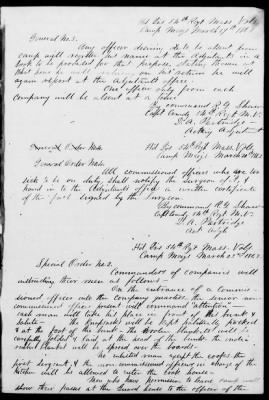 Hd Qrs 54th Regt Mass. Vols
Camp Meigs March 19th 1863
General No 3.
Any officer desiring to be absent from
camp will register his name at the Adjutants in a
book to be provided for the purpose, stating
that hour he will return. On his return he will
again report at the Adjutants office.
One officer only from each
company will be absent at a time.
By command R. G. Shaw
Capt Comdg 54th Regt M. V.
Acting Adjutant
General Order No 4.
Hd Qrs 54th Regt Mass. Vols
Camp Meigs March 1863
General Order No 4.
All commissioned officers who are too
sick to be on duty, shall notify the Surgeon of it, &
hand in to the Adjutants office a written certificate
of the fact signed by the Surgeon.
By command R. G. Shaw
Capt Comdg 54th Regt M. V.
Act. Adjt
Hd Qrs 54th Regt Mass. Vols
Camp Meigs March 1863.
Special Order No 2.
Commanders of companies will
instruct their men as follows:
On the entrance of a Commis-
sioned officer into the Company quarters, the senior non-
commissioned officer present will command "attention"
each man will take his place in front of his bunk &
salute. The knapsacks will be kept packed
at the foot of the bunk. The
carefully folded & laid at the head of the bunk. The
rubber blanket will be spread over the boards.
No enlisted man except the cooks the
first sergeant, & the non commissioned officer in charge of the
kitchen will be allowed to enter the cook house.
Men who have permission to leave camp will
show their passes at the Guard house to the officer of the